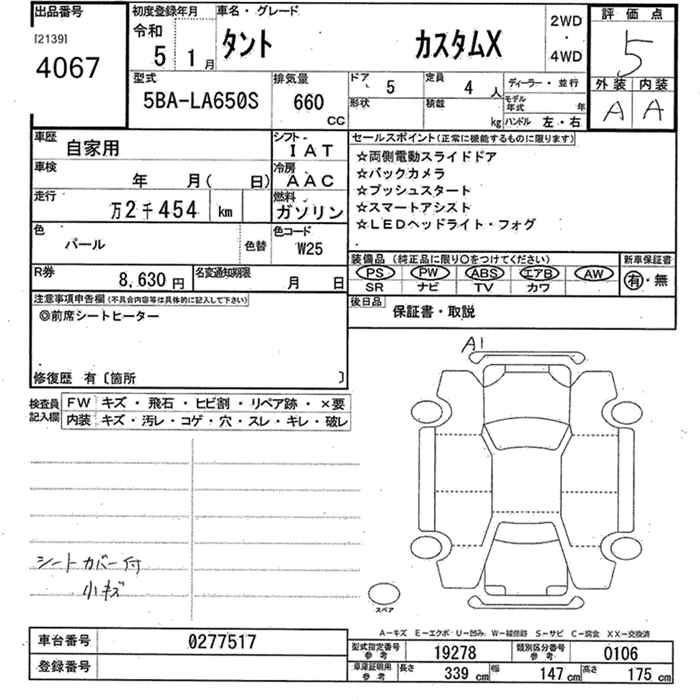 出品番号 初度登録年月 車名・グレード 2WD 評価点
[2139] 令和 ・
4067 5 1月 タント カスタムX 4WD 5
型式 排気量 ドア 5 定員 4人 ディーラー・並行 外装 内装
5BA-LA650S 660 CC 形状 積載 kg モデル年式 年 A A
ハンドル 左・右
車歴 自家用 シフト IAT セールスポイント(正常に機能するものに限ります)
車検 年 月( 日) 冷房 AAC ☆両側電動スライドドア
☆バックカメラ
走行 万2千454 km 燃料 ガソリン ☆プッシュスタート
☆スマートアシスト
色 パール 色替 色コード W25 ☆LEDヘッドライト・フォグ
装備品(純正品に限り○をつけてください) 新車保証書
R券 8,630円 名変通知期限 月 日 PS PW ABS エアB AW 有・無
SR ナビ TV カワ
注意事項申告欄(不具合内容等は具体的に記入して下さい) 後日品 保証書・取説
◎前席シートヒーター
修復歴 有〔箇所 〕
検査員記入欄 FW キズ・飛石・ヒビ割・リペア跡・×要
内装 キズ・汚レ・コゲ・穴・スレ・キレ・破レ
A1
シートカバー付
小キズ
スペア
A-キズ E-エクボ U-凹み W-線修跡 S-サビ C-腐食 XX-交換済
車台番号 0277517 型式指定番号参考 19278 類別区分番号参考 0106
登録番号 車庫証明用参考 長さ 339cm 幅 147cm 高さ 175cm